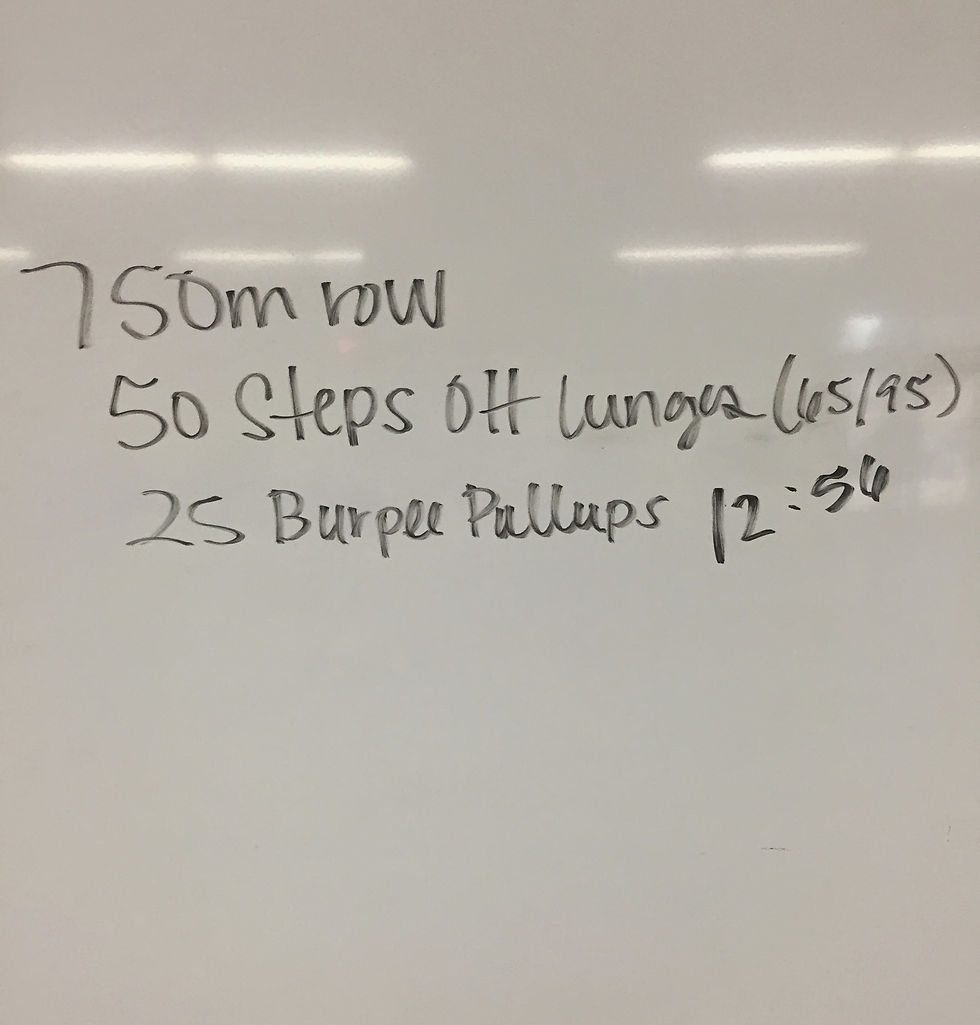 750m row
50 Steps OH lunges (65/95)
25 Burpee Pullups 12:56